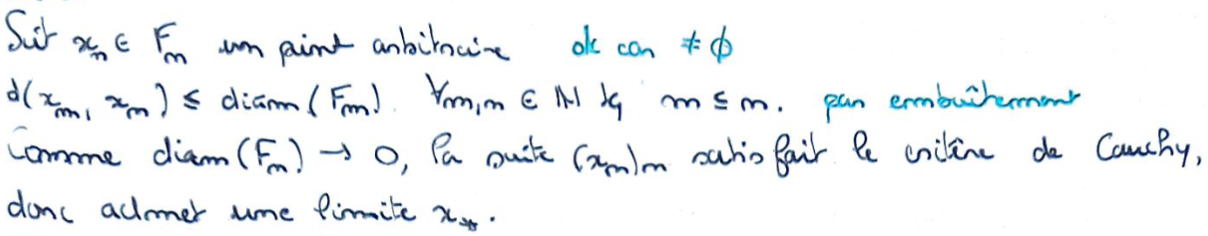 Soit xₙ ∈ Fₙ un point arbitraire ok car ≠ ∅
d(xₘ, xₙ) ≤ diam(Fₘ). ∀m,n ∈ ℕ tq m ≤ n. par emboîtement
Comme diam(Fₙ) → 0, la suite (xₙ)ₙ satisfait le critère de Cauchy,
donc admet une limite x_*.